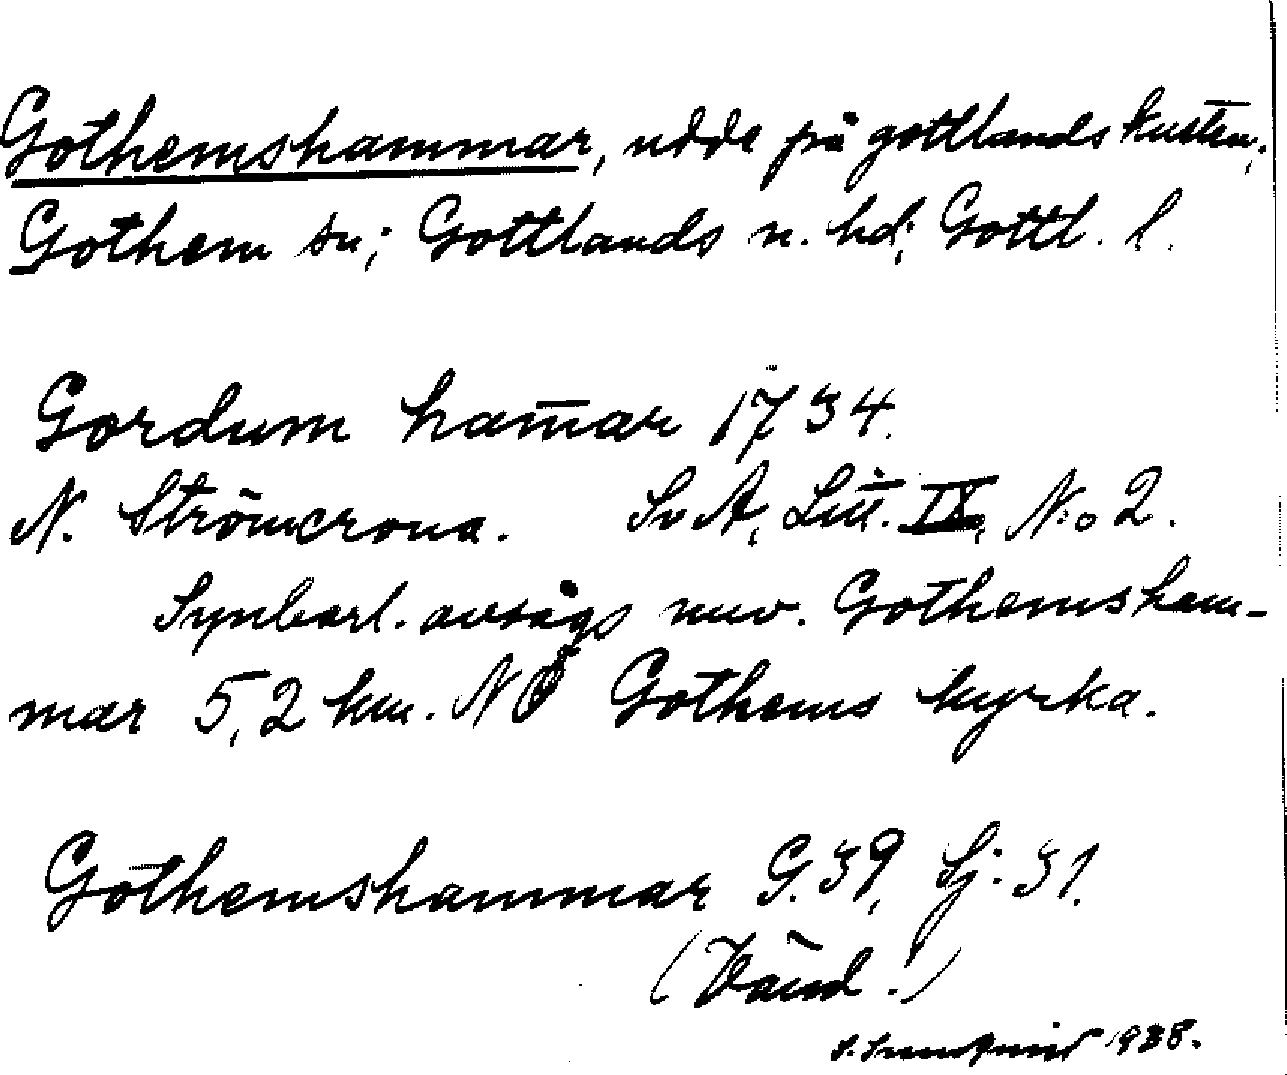 Gothemshammar, udde på gottlandskusten;
Gothem sn; Gottlands n. hd; Gottl. l.
Gordum ham̅ar 1734.
N. Strömcrona. SvA, Litt. IX, N:o 2.
Synbarl. avsågs nuv. Gothemsham-
mar 5,2 km. NÖ Gothems kyrka.
Gothemshammar G. 39, Sj: 31.
(Vänd!)
1938.